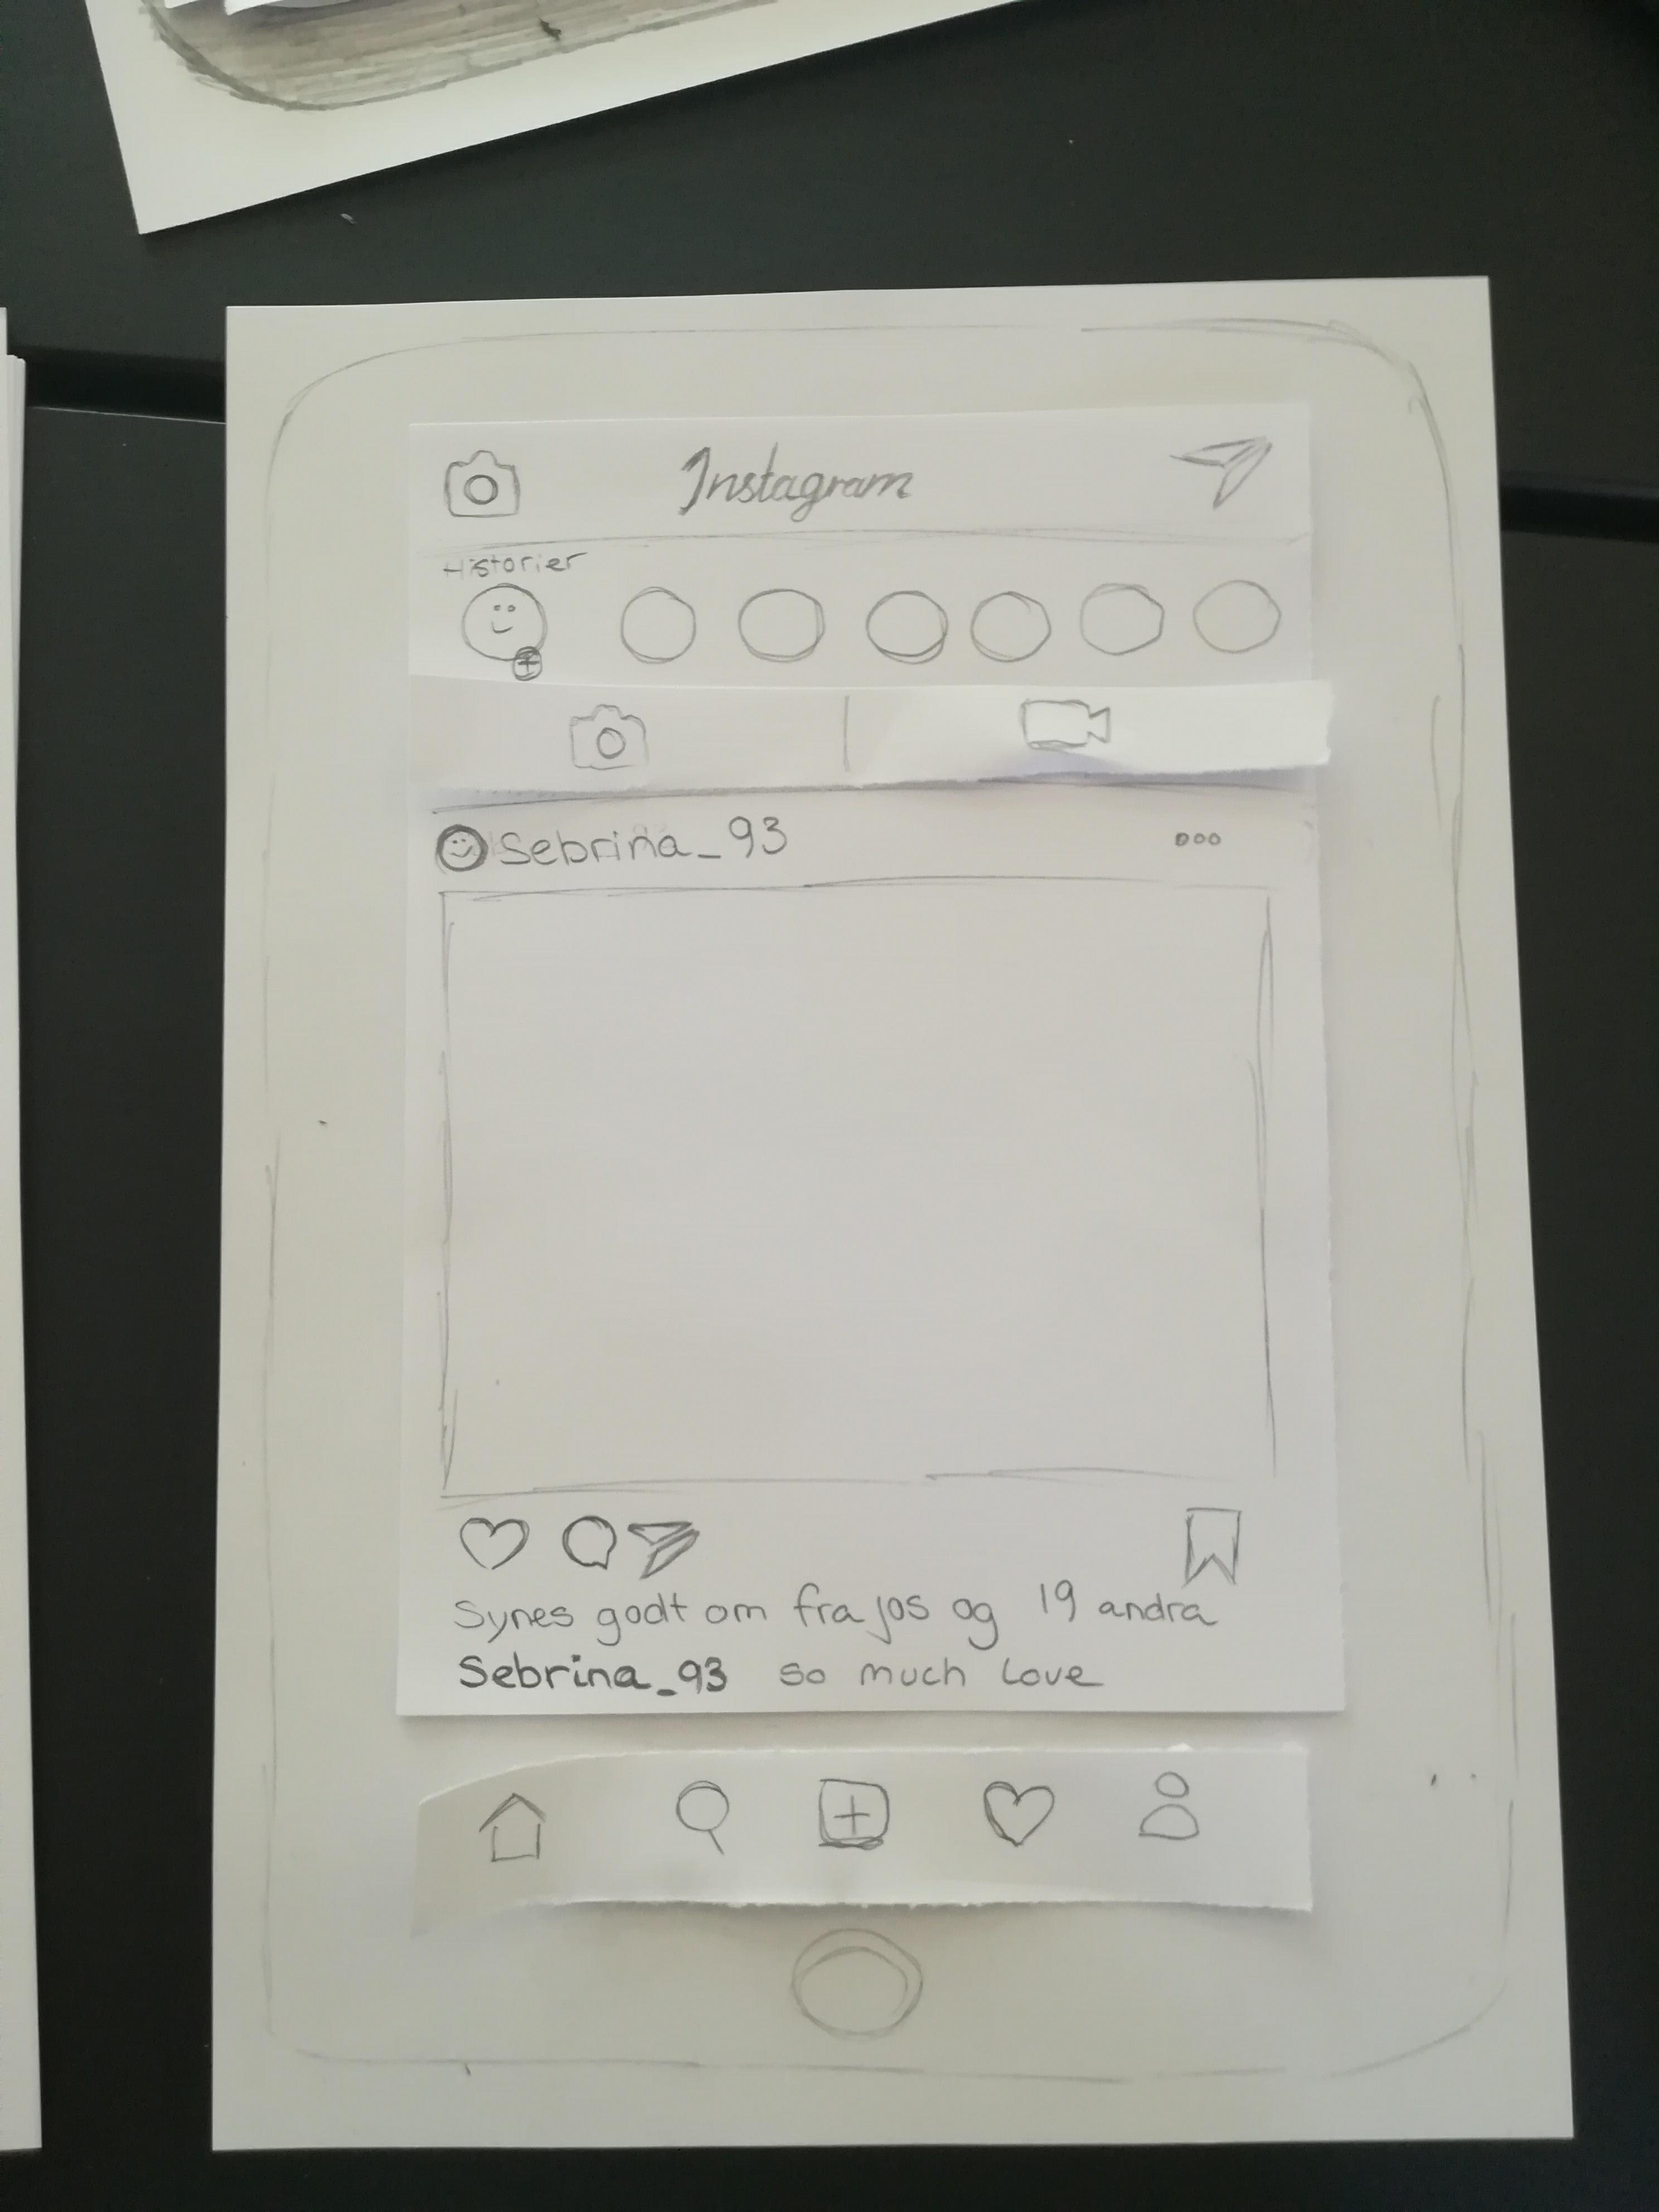 Instagram
Historier
Sebrina_93
Synes godt om fra jos og 19 andra
Sebrina_93 so much love